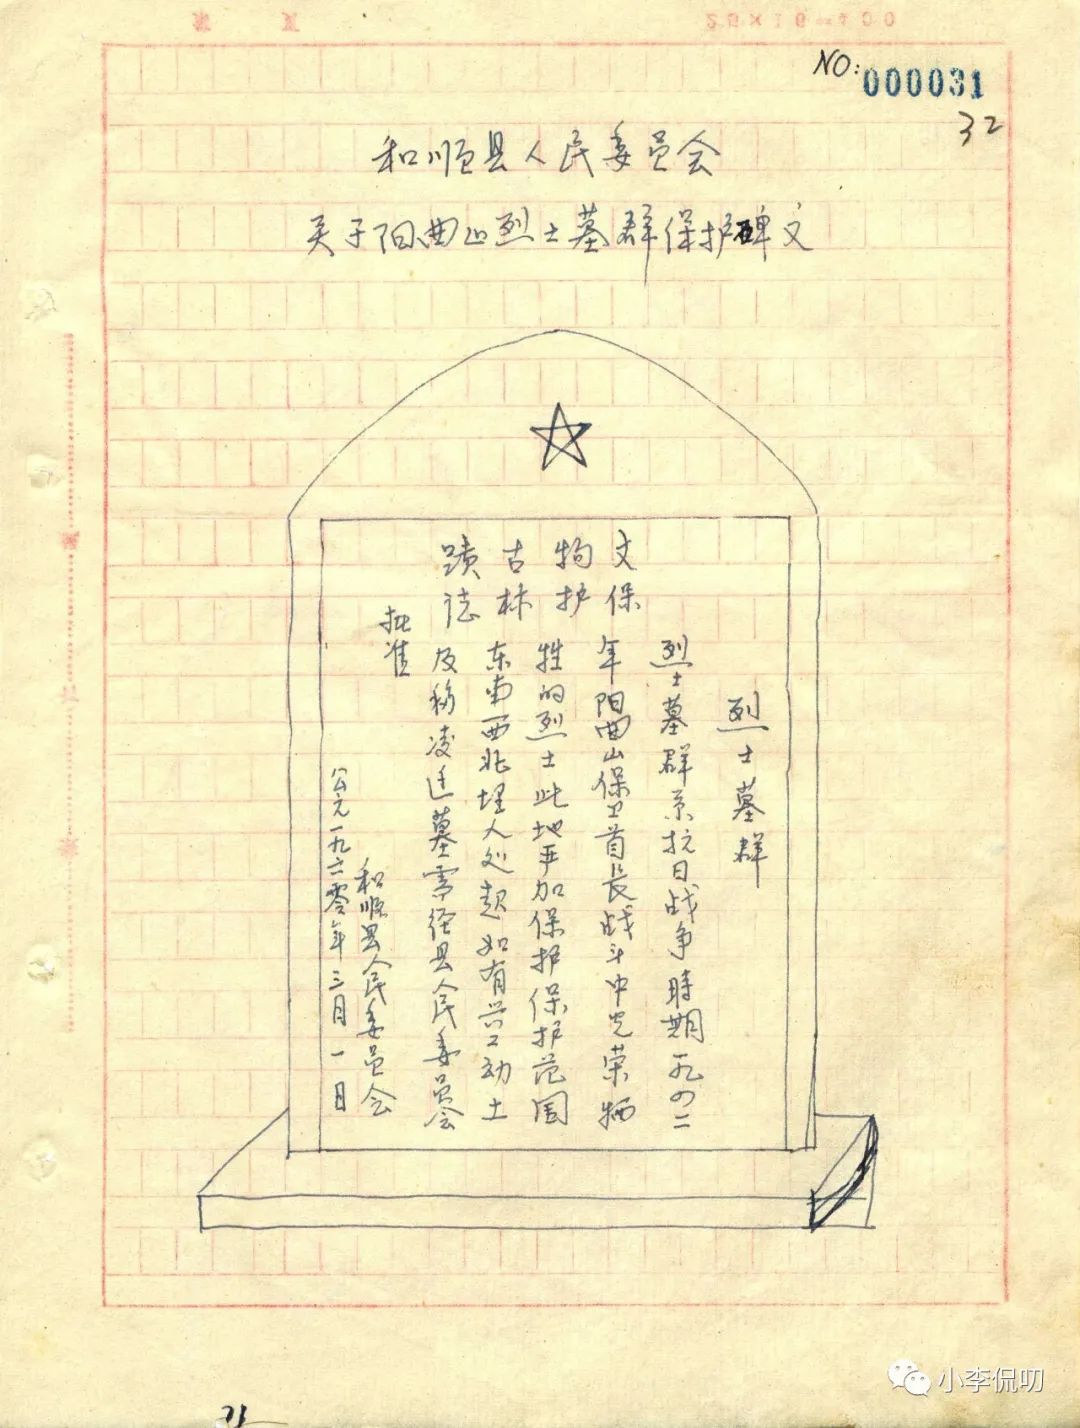 NO: 000031
32
和顺县人民委员会
关于阳曲山烈士墓群保护碑文
文物古蹟
保护标誌
烈士墓群
烈士墓群系抗日战争時期一九四二
年阳曲山保卫首長战斗中光荣牺
牲的烈士此地严加保护保护范围
东南西北埋人处起如有兴工动土
及移凌迁墓需经县人民委员会
批准
和顺县人民委员会
公元一九六零年三月一日
小李侃叨